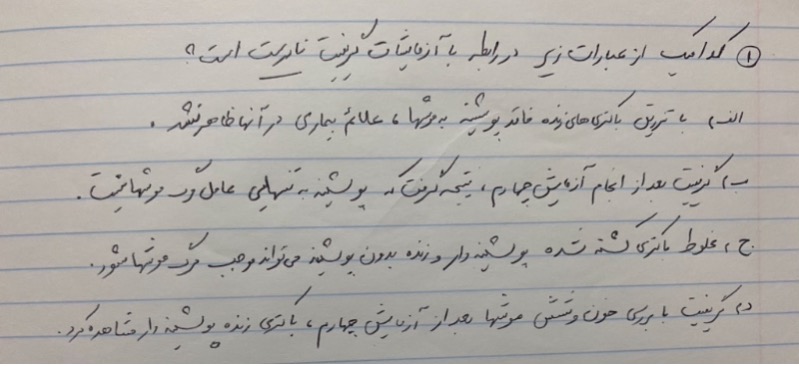 ① کدامیک از عبارات زیر در رابطه با آزمایشات گریفیت نادرست است؟
الف) با تزریق باکتری‌های زنده فاقد پوشینه به موشها، علائم بیماری در آنها ظاهر نشد.
ب) گریفیت بعد از انجام آزمایش چهارم، نتیجه گرفت که پوشینه به تنهایی عامل مرگ موشها نیست.
ج) مخلوط باکتری کشته شده پوشینه دار و زنده بدون پوشینه می‌تواند موجب مرگ موشها شود.
د) گریفیت با بررسی خون و شش موشها بعد از آزمایش چهارم، باکتری زنده پوشینه دار مشاهده کرد.